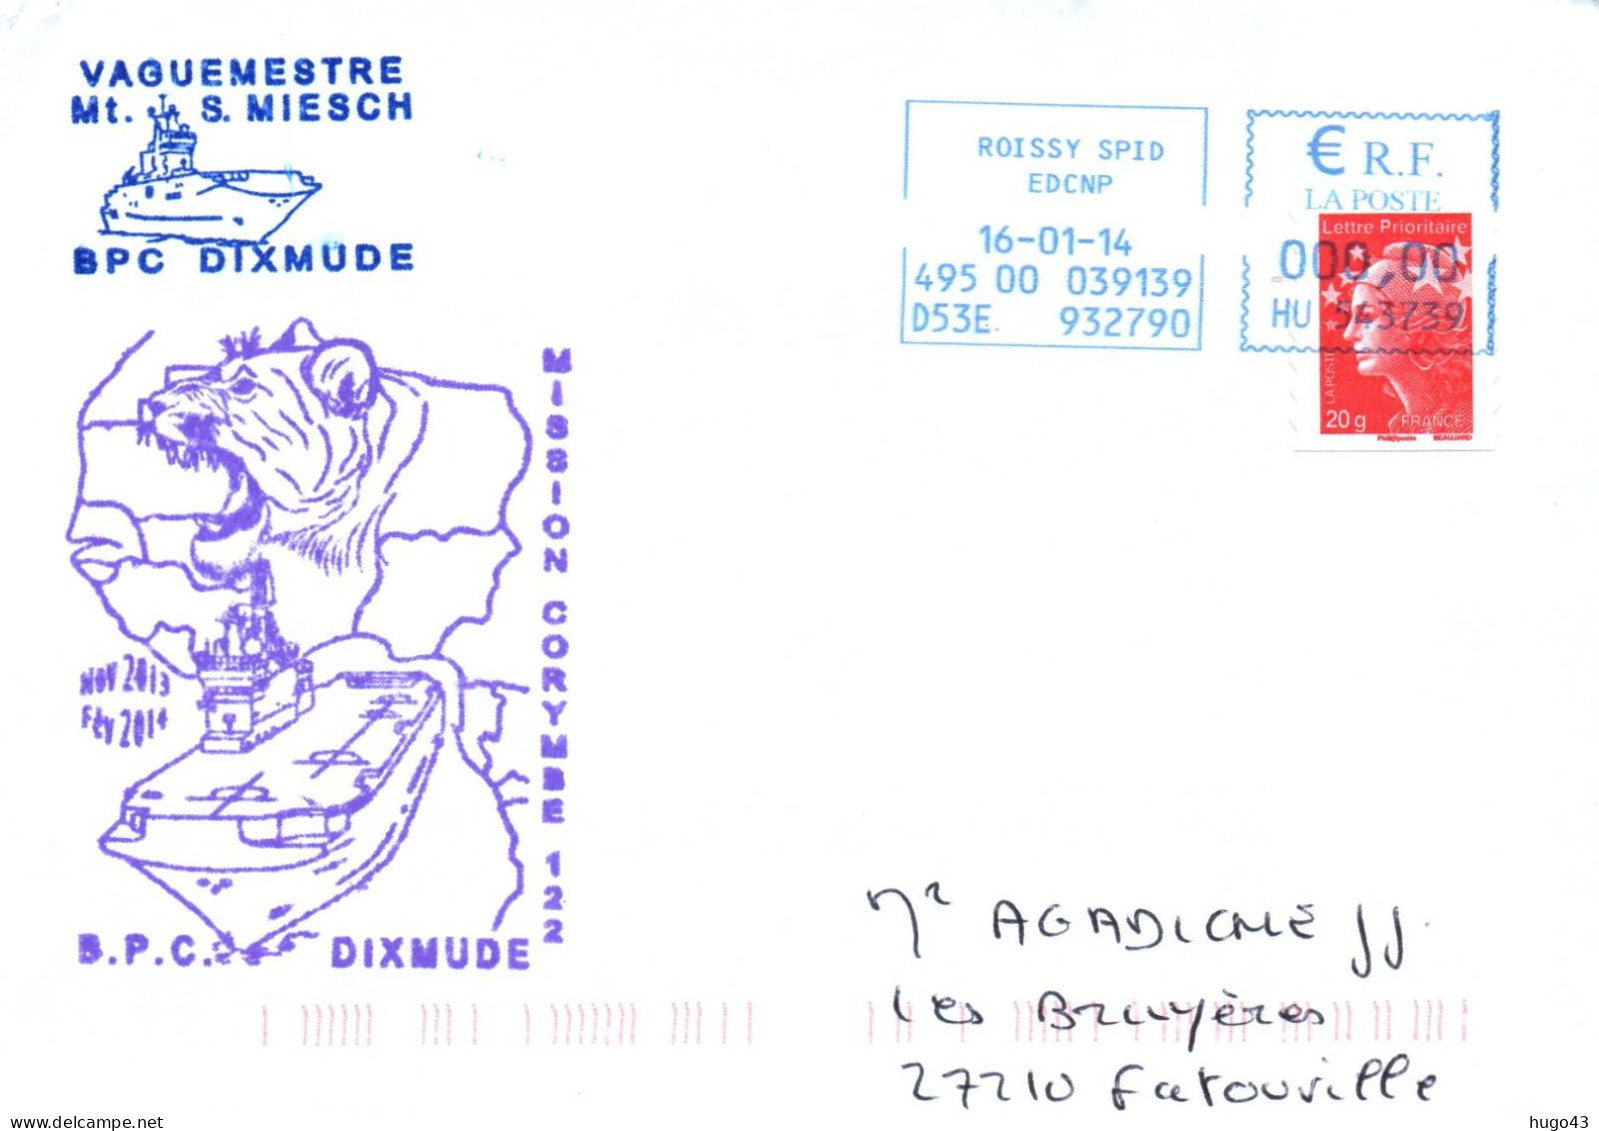 VAGUEMESTRE
Mt. S. MIESCH
BPC DIXMUDE
ROISSY SPID
EDCNP
16-01-14
495 00 039139
D53E 932790
€ R.F.
LA POSTE
Lettre Prioritaire
000,00
HU 543739
LA POSTE
20 g FRANCE
Phil@poste BEAUJARD
MISSION CORYMBE 122
NOV 2013
Fév 2014
B.P.C. DIXMUDE
Les Bruyères
27210 Fatouville
hugo43